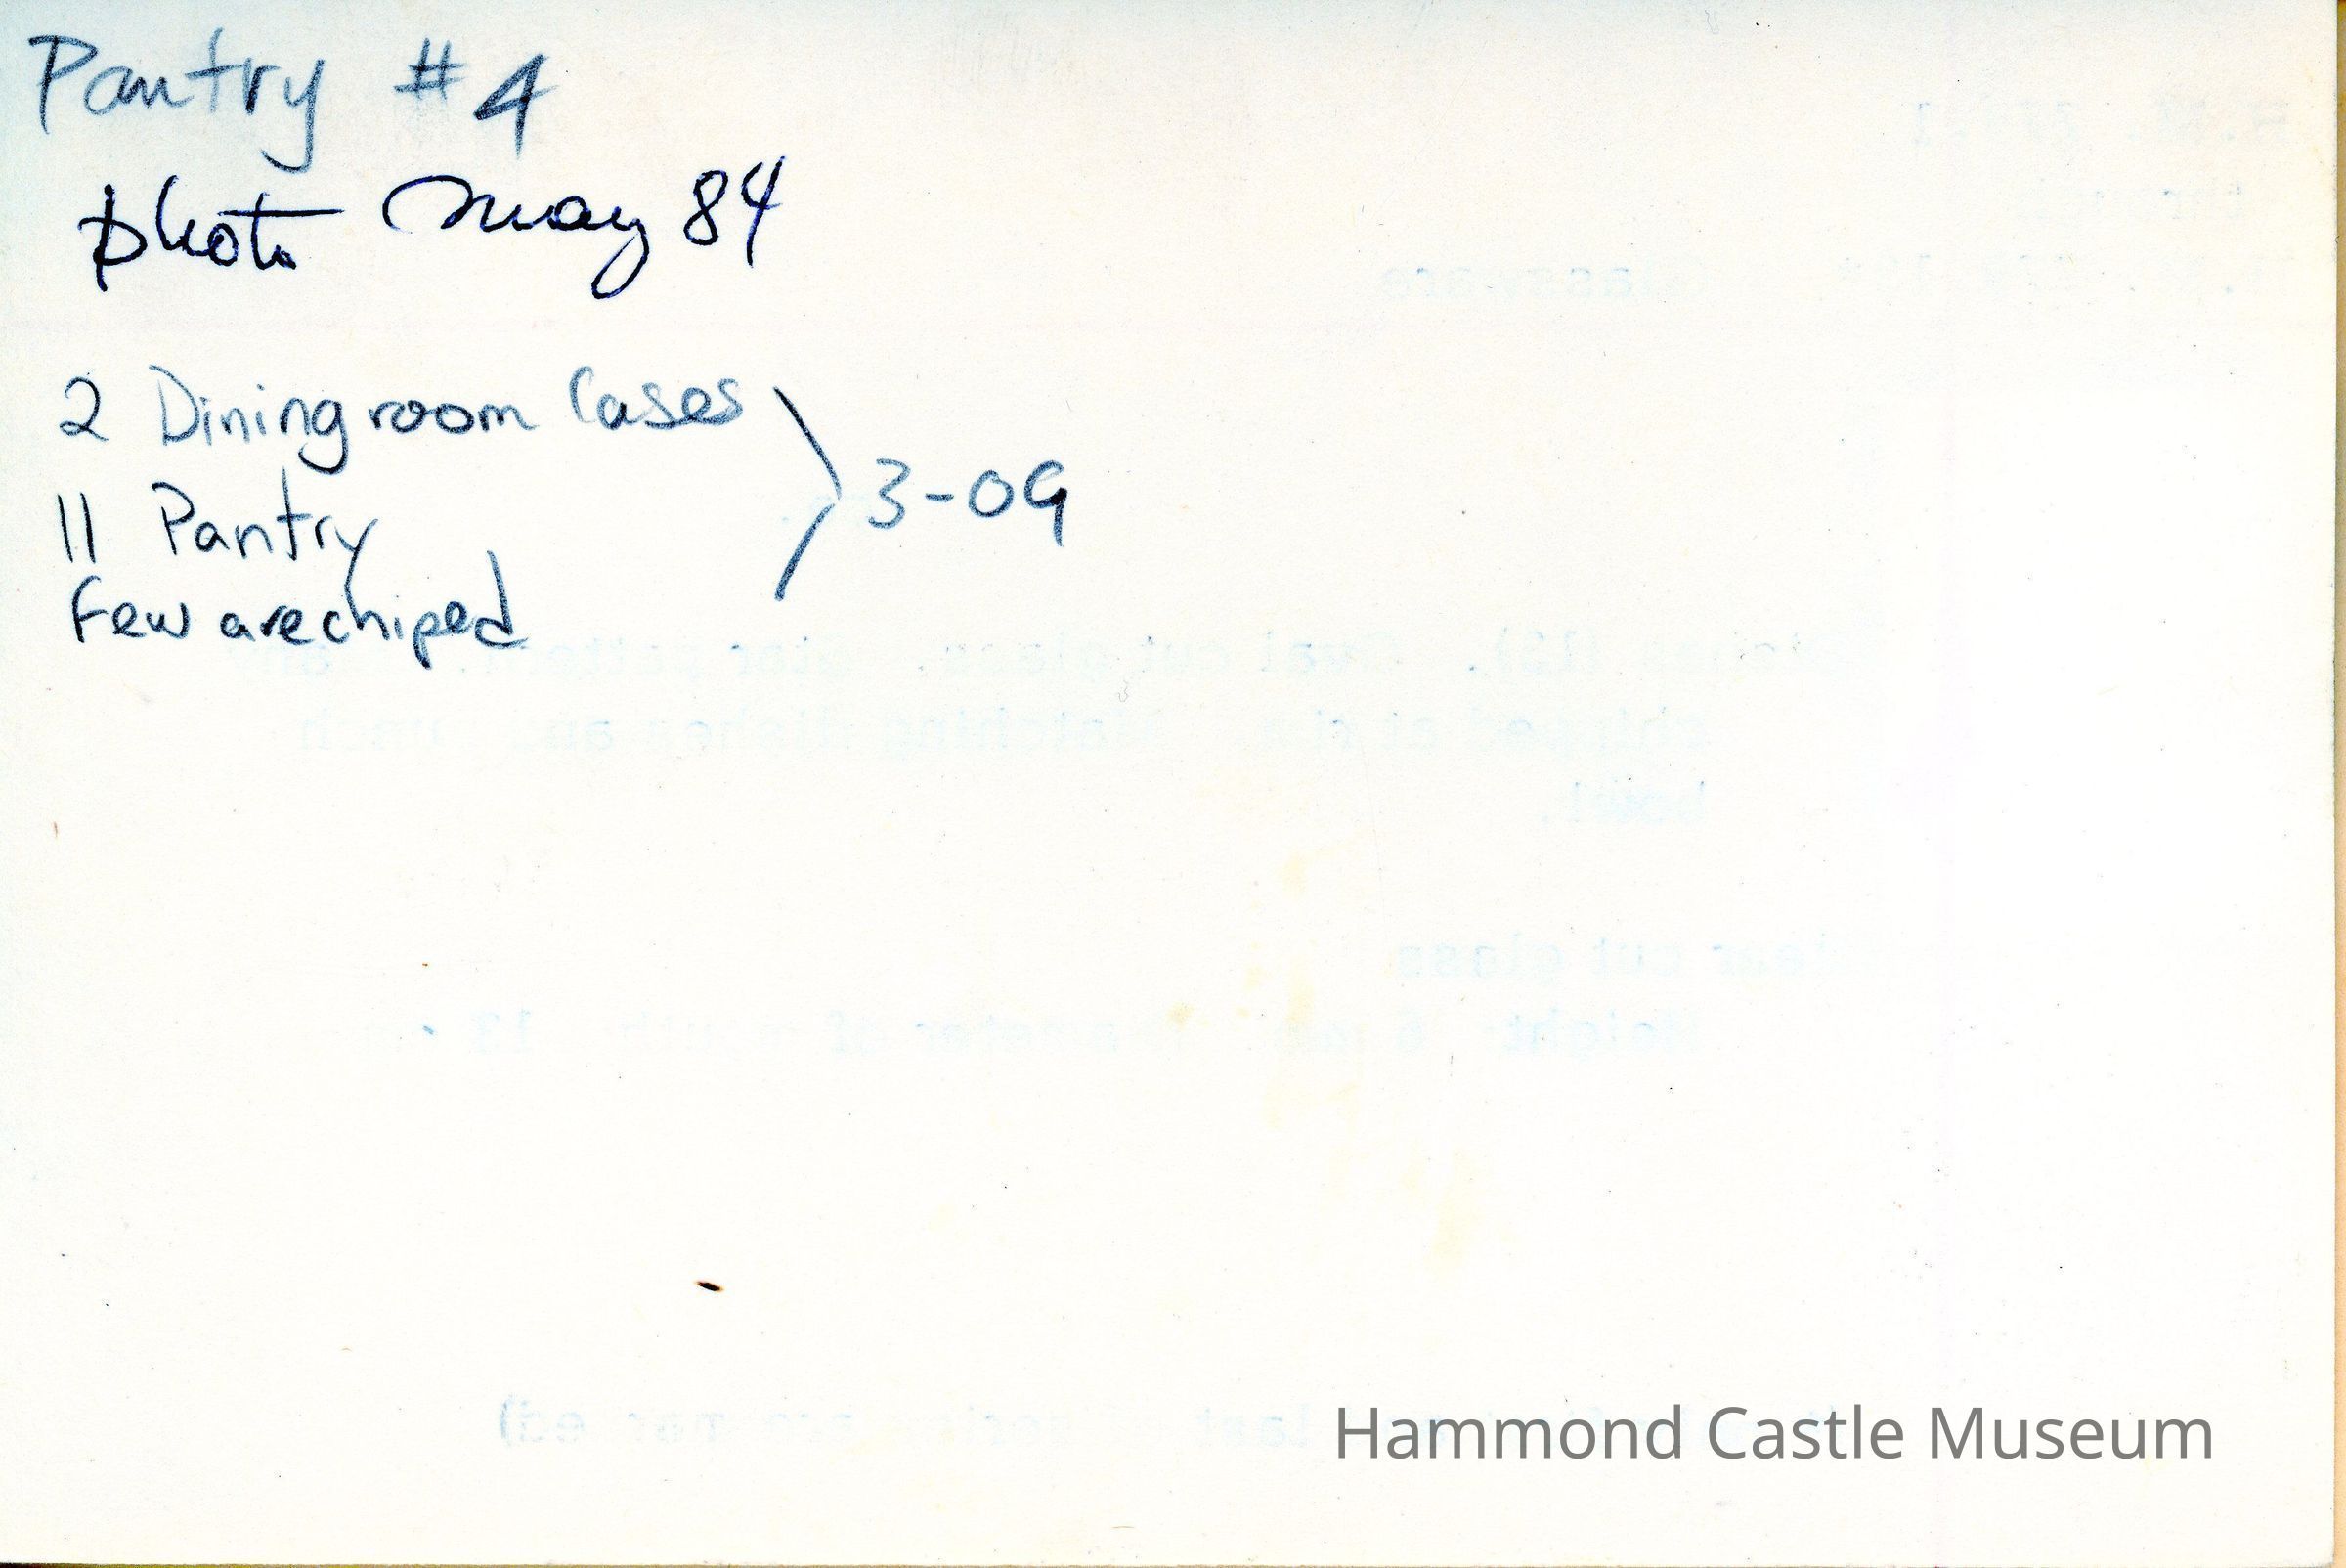 Pantry #4
photo May 84
2 Dining room Cases
11 Pantry
Few are chiped
3-09
Hammond Castle Museum